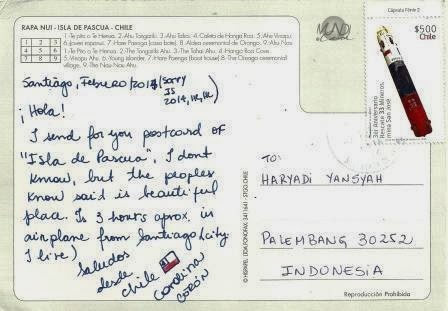 RAPA NUI - ISLA DE PASCUA - CHILE
1 2 3
4 5 6
7 8 9
1.-Te pito o Te Henua. 2.-Ahu Tongariki. 3.-Ahu Tahai. 4.-Caleta de Hanga Roa. 5.-Ahu Vinapu.
6.-Joven rapanui. 7.-Hare Paenga (casa bote). 8.-Aldea ceremonial de Orongo. 9.-Ahu Nau Nau.
1.-Te Pito o Te Henua. 2.-The Ahu Tongariki. 3.-The Ahu Tahai. 4.-The Hanga Roa Cove.
5.-Ahu Vinapu. 6.-Young islander. 7.-Hare Paenga (boat house) 8.-The Orongo ceremonial
village. 9.-The Nau Nau Ahu.
Santiago, Febrero/201 (sorry
is
2014,
¡Hola!
I send for you postcard of
"Isla de Pascua", I dont
know, but the peoples
know said is beautiful
place. Is 3 hours aprox. in
airplane from Santiago (city
I live)
Saludos
desde
Chile
Carolina
© HERNFEL LTDA. FONO/FAX: 341 1641 - STGO. CHILE
MUNDI
Cápsula Fénix 2
$500
Chile
3er Aniversario
Rescate 33 Mineros,
mina San José
TO:
HARYADI YANSYAH
PALEMBANG 30252
INDONESIA
Reproducción Prohibida